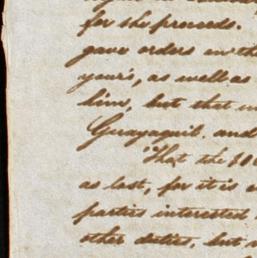 for the proceeds.
gave orders on th
yours, as well as
him, but that
Guayaquil. and
That the 10
as last, for it is
parties interested
other duties, but